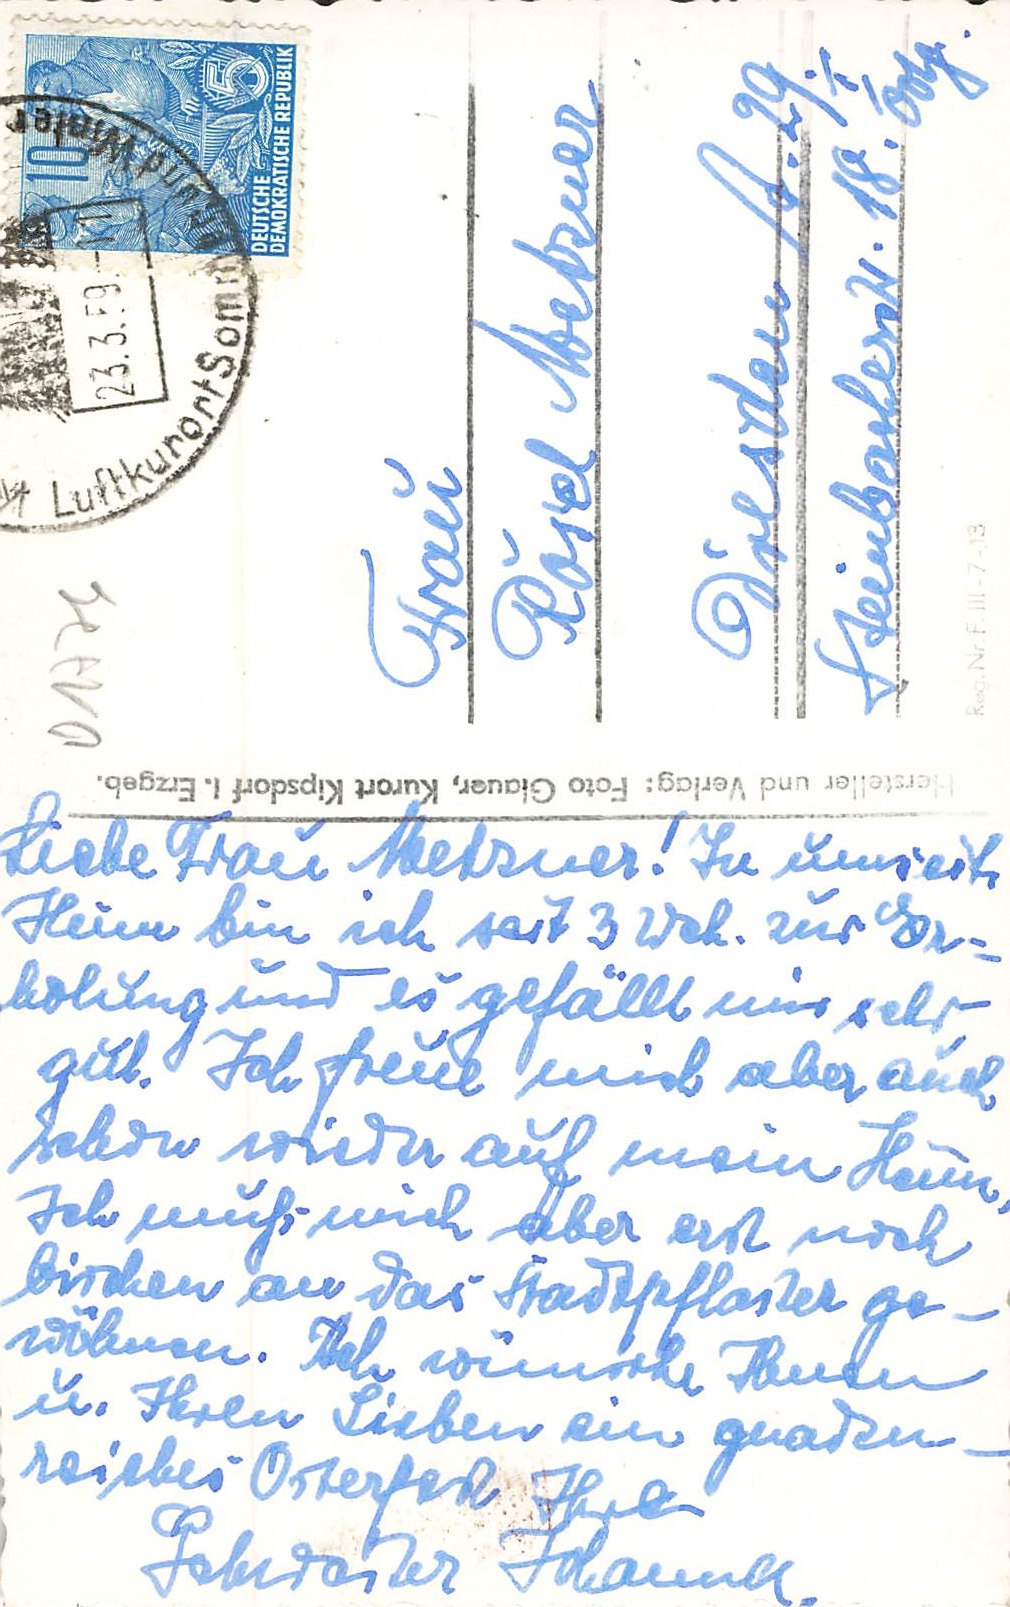 Liebe Frau Metzner! In umseit.
Heim bin ich seit 3 Wch. zur Er=
holung und es gefällt mir sehr
gut. Ich freue mich aber auch
schon wieder auf mein Heim,
Ich muß mich aber erst noch
bischen an das Stadtpflaster ge-
wöhnen. Ich wünsche Ihnen
u. Ihren Lieben ein gnaden-
reiches Osterfest Ihre
Schwester Johanna.
Hersteller und Verlag: Foto Glauer, Kurort Kipsdorf i. Erzgeb.
Frau
Rösel Metzner
Dresden A. 29.
Steinbacherstr. 18. I
Reg. Nr. F. III-7-13
DEUTSCHE
DEMOKRATISCHE REPUBLIK
5
10
Luftkurort Sommer und Winter
23.3.59